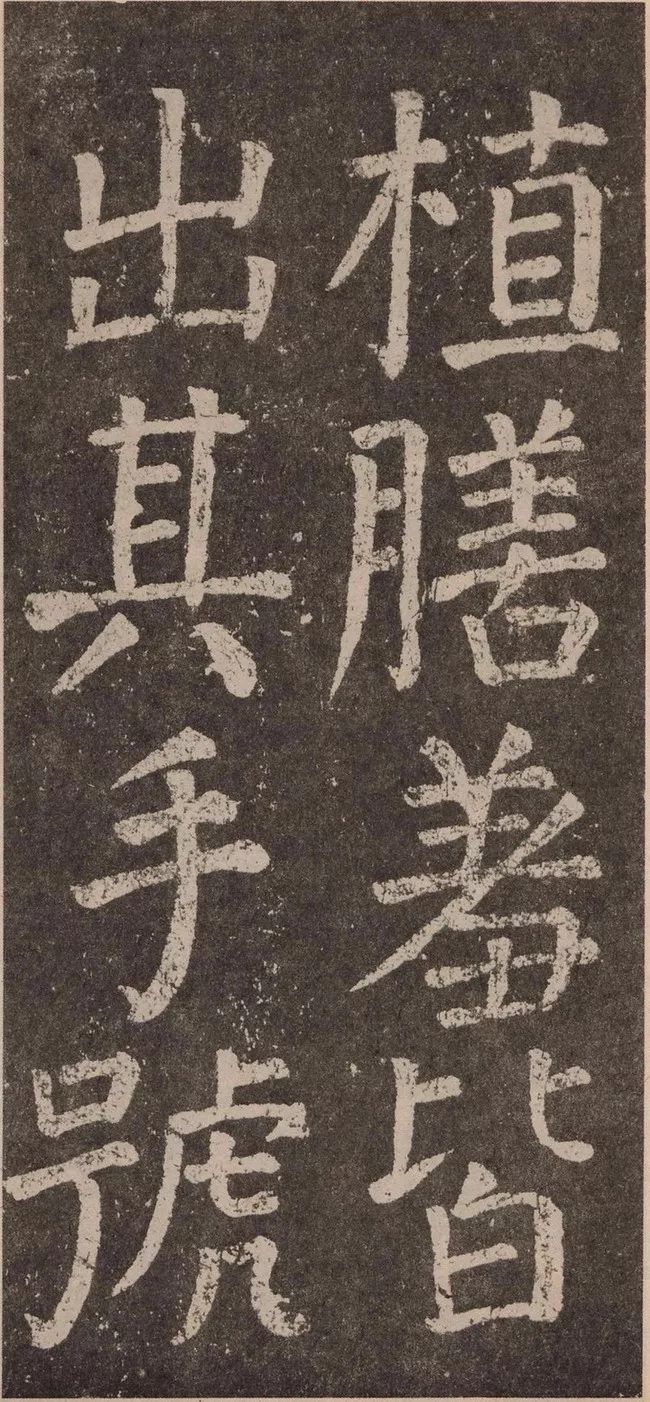 植膳羞皆
出其手號